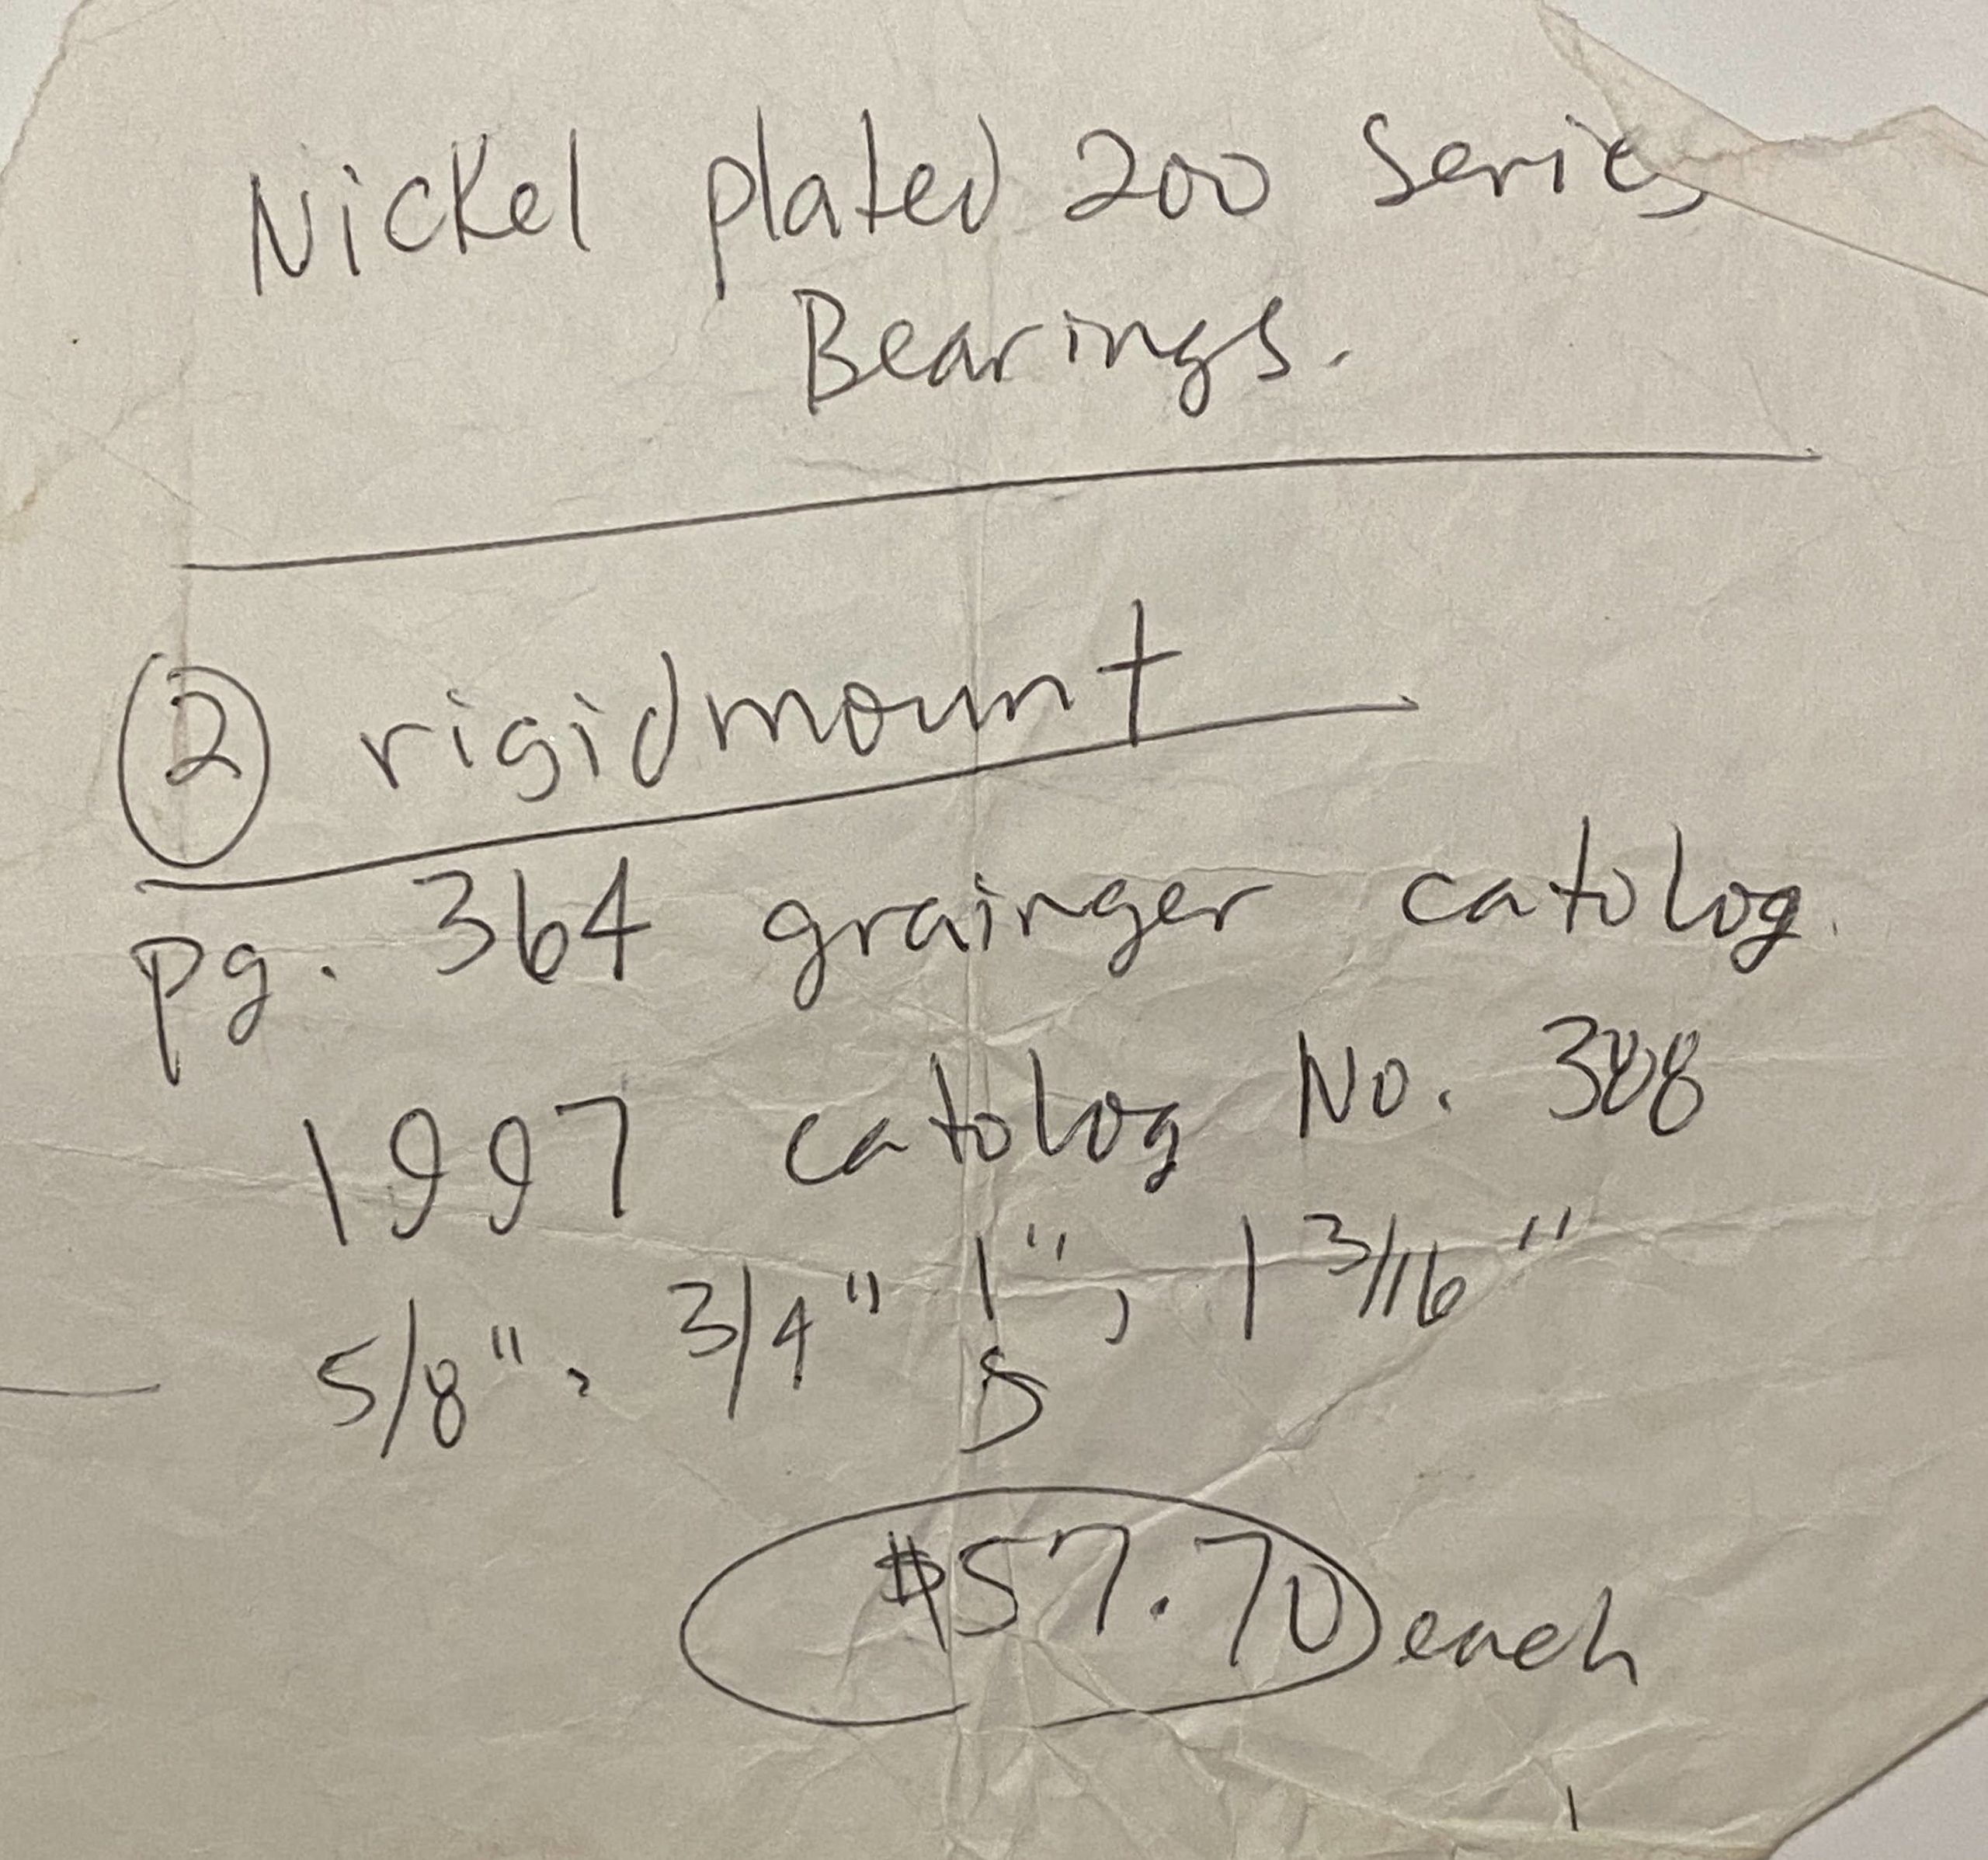 Nickel plated 200 Series
Bearings.
2 rigidmount
pg. 364 grainger catolog.
1997 catolog No. 388
5/8", 3/4" 1", 1 3/16"
5
$57.70 each